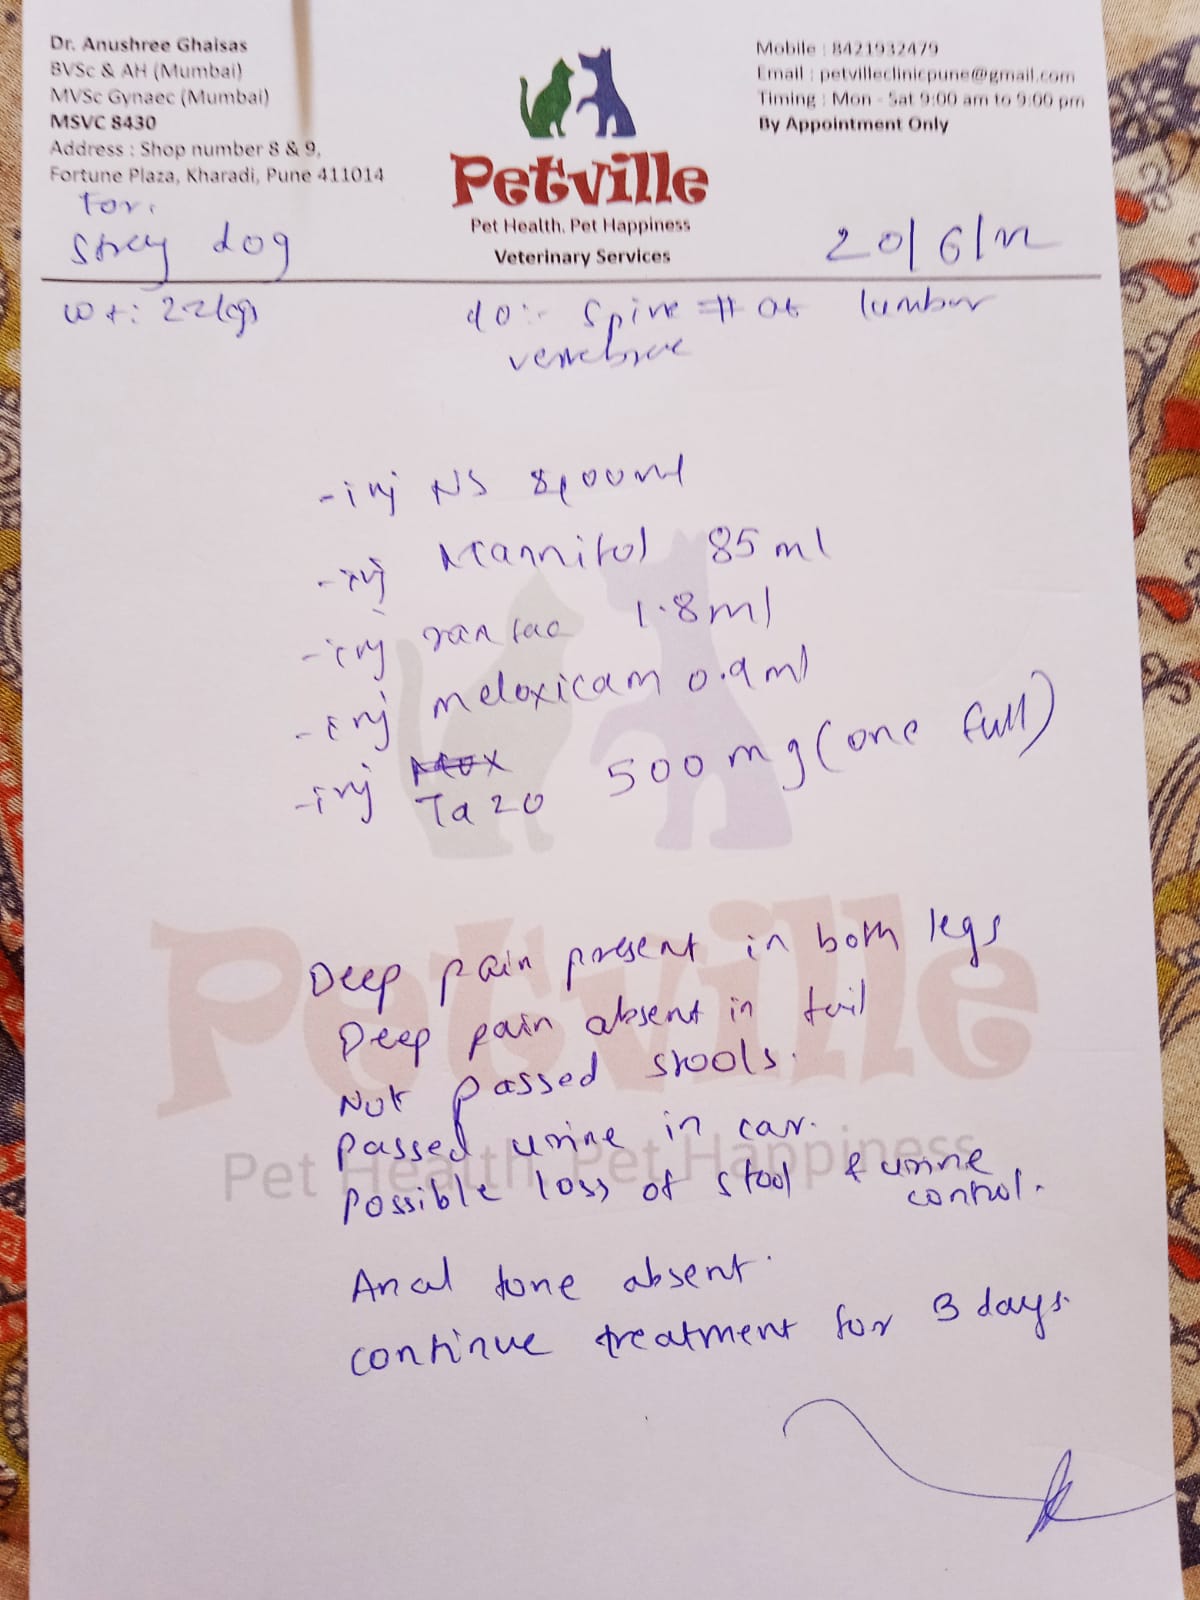 Dr. Anushree Ghaisas
BVSc & AH (Mumbai)
MVSc Gynaec (Mumbai)
MSVC 8430
Address : Shop number 8 & 9,
Fortune Plaza, Kharadi, Pune 411014
Petville
Pet Health. Pet Happiness
Veterinary Services
Mobile : 8421932479
Email : petvilleclinicpune@gmail.com
Timing : Mon - Sat 9:00 am to 9:00 pm
By Appointment Only
For.
Stray dog
20/6/22
wt: 22kgs
Spine # at lumbar
vertebrae
- inj NS
- inj Mannitol 85 ml
- inj rantac 1.8ml
- inj meloxicam 0.9ml
- inj Tazo 500 mg (one full)
Deep pain present in both legs
Deep pain absent in tail
Not passed stools.
passed urine in car.
possible loss of stool & urine
control.
Anal tone absent.
continue treatment for 3 days.
Petville
Pet Health. Pet Happiness